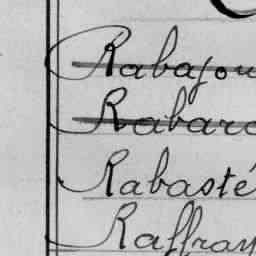 Rabajou
Rabard
Rabasté
Raffran